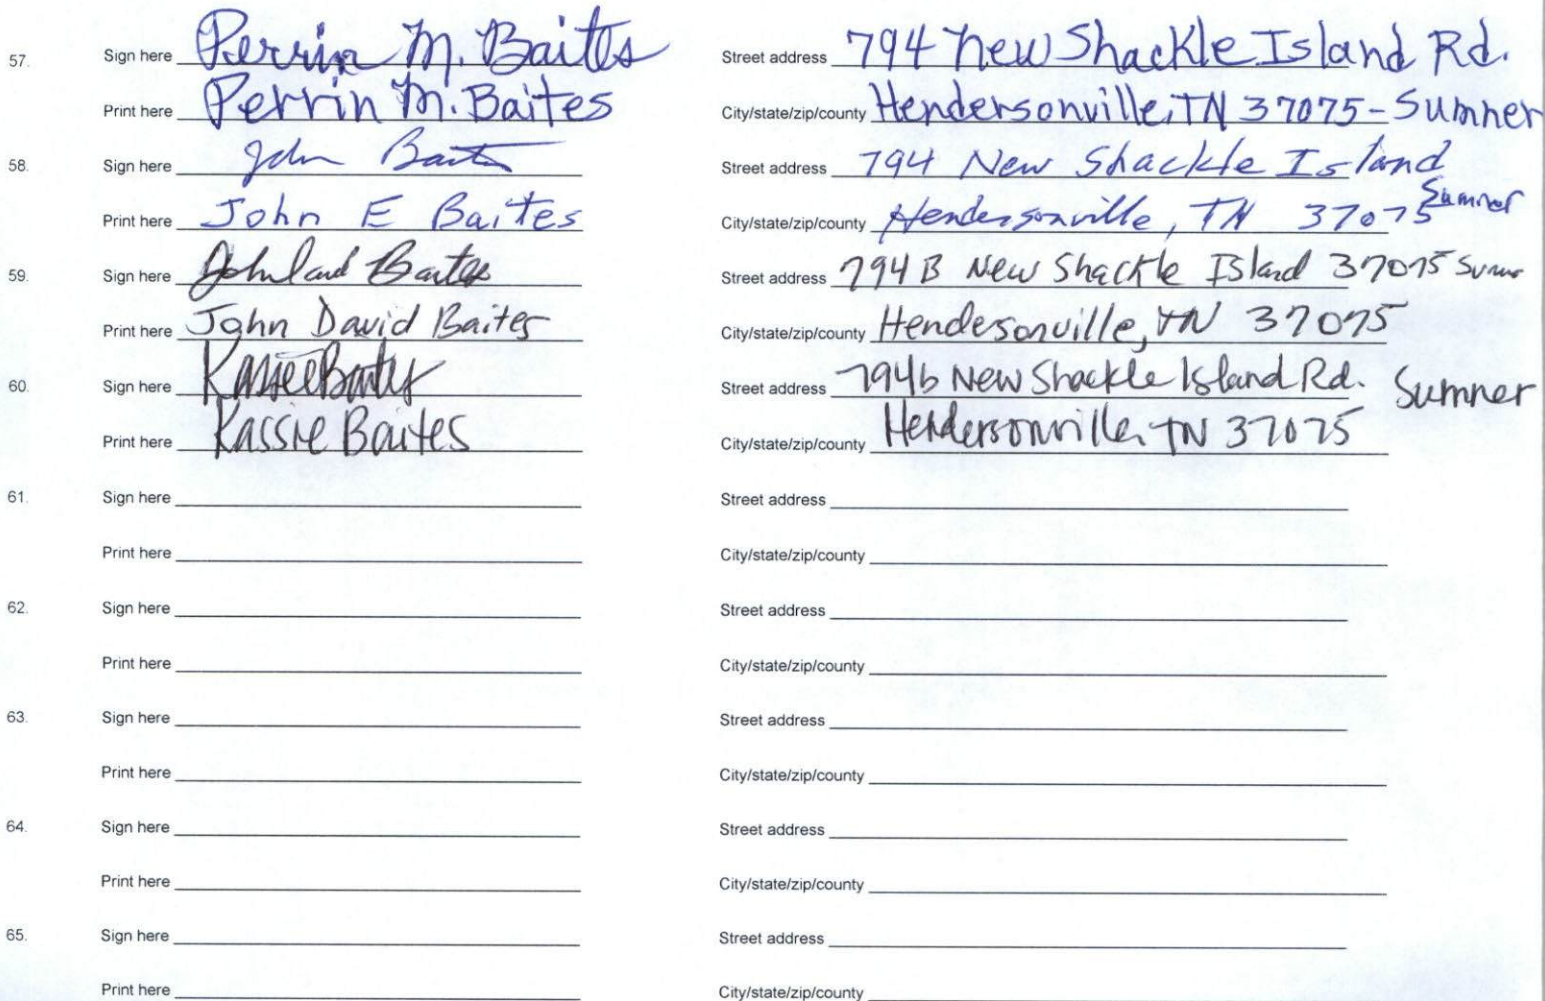 57. Sign here Perrin M. Baites Street address 794 New Shackle Island Rd.
Print here Perrin M. Baites City/state/zip/county Hendersonville, TN 37075 - Sumner
58. Sign here John Baites Street address 794 New Shackle Island
Print here John E Baites City/state/zip/county Hendersonville, TN 37075 Sumner
59. Sign here John David Baites Street address 794 B New Shackle Island 37075 Sumner
Print here John David Baites City/state/zip/county Hendesonville, TN 37075
60. Sign here Kassie Baites Street address 794b New Shackle Island Rd. Sumner
Print here Kassie Baites City/state/zip/county Hendersonville, TN 37075
61. Sign here Street address
Print here City/state/zip/county
62. Sign here Street address
Print here City/state/zip/county
63. Sign here Street address
Print here City/state/zip/county
64. Sign here Street address
Print here City/state/zip/county
65. Sign here Street address
Print here City/state/zip/county